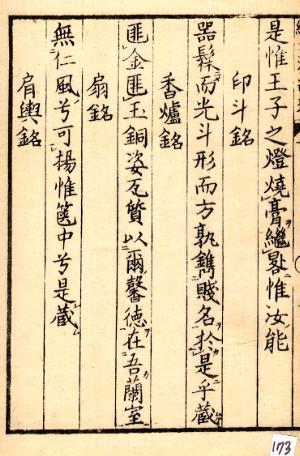 是惟王子之燈燒膏繼晷惟汝能
印斗銘
器髹而光斗形而方孰鐫賤名於是乎藏
香爐銘
匪金匪玉銅姿瓦質以爾馨德在吾蘭室
扇銘
無仁風兮可揚惟篋中兮是藏
肩輿銘
173